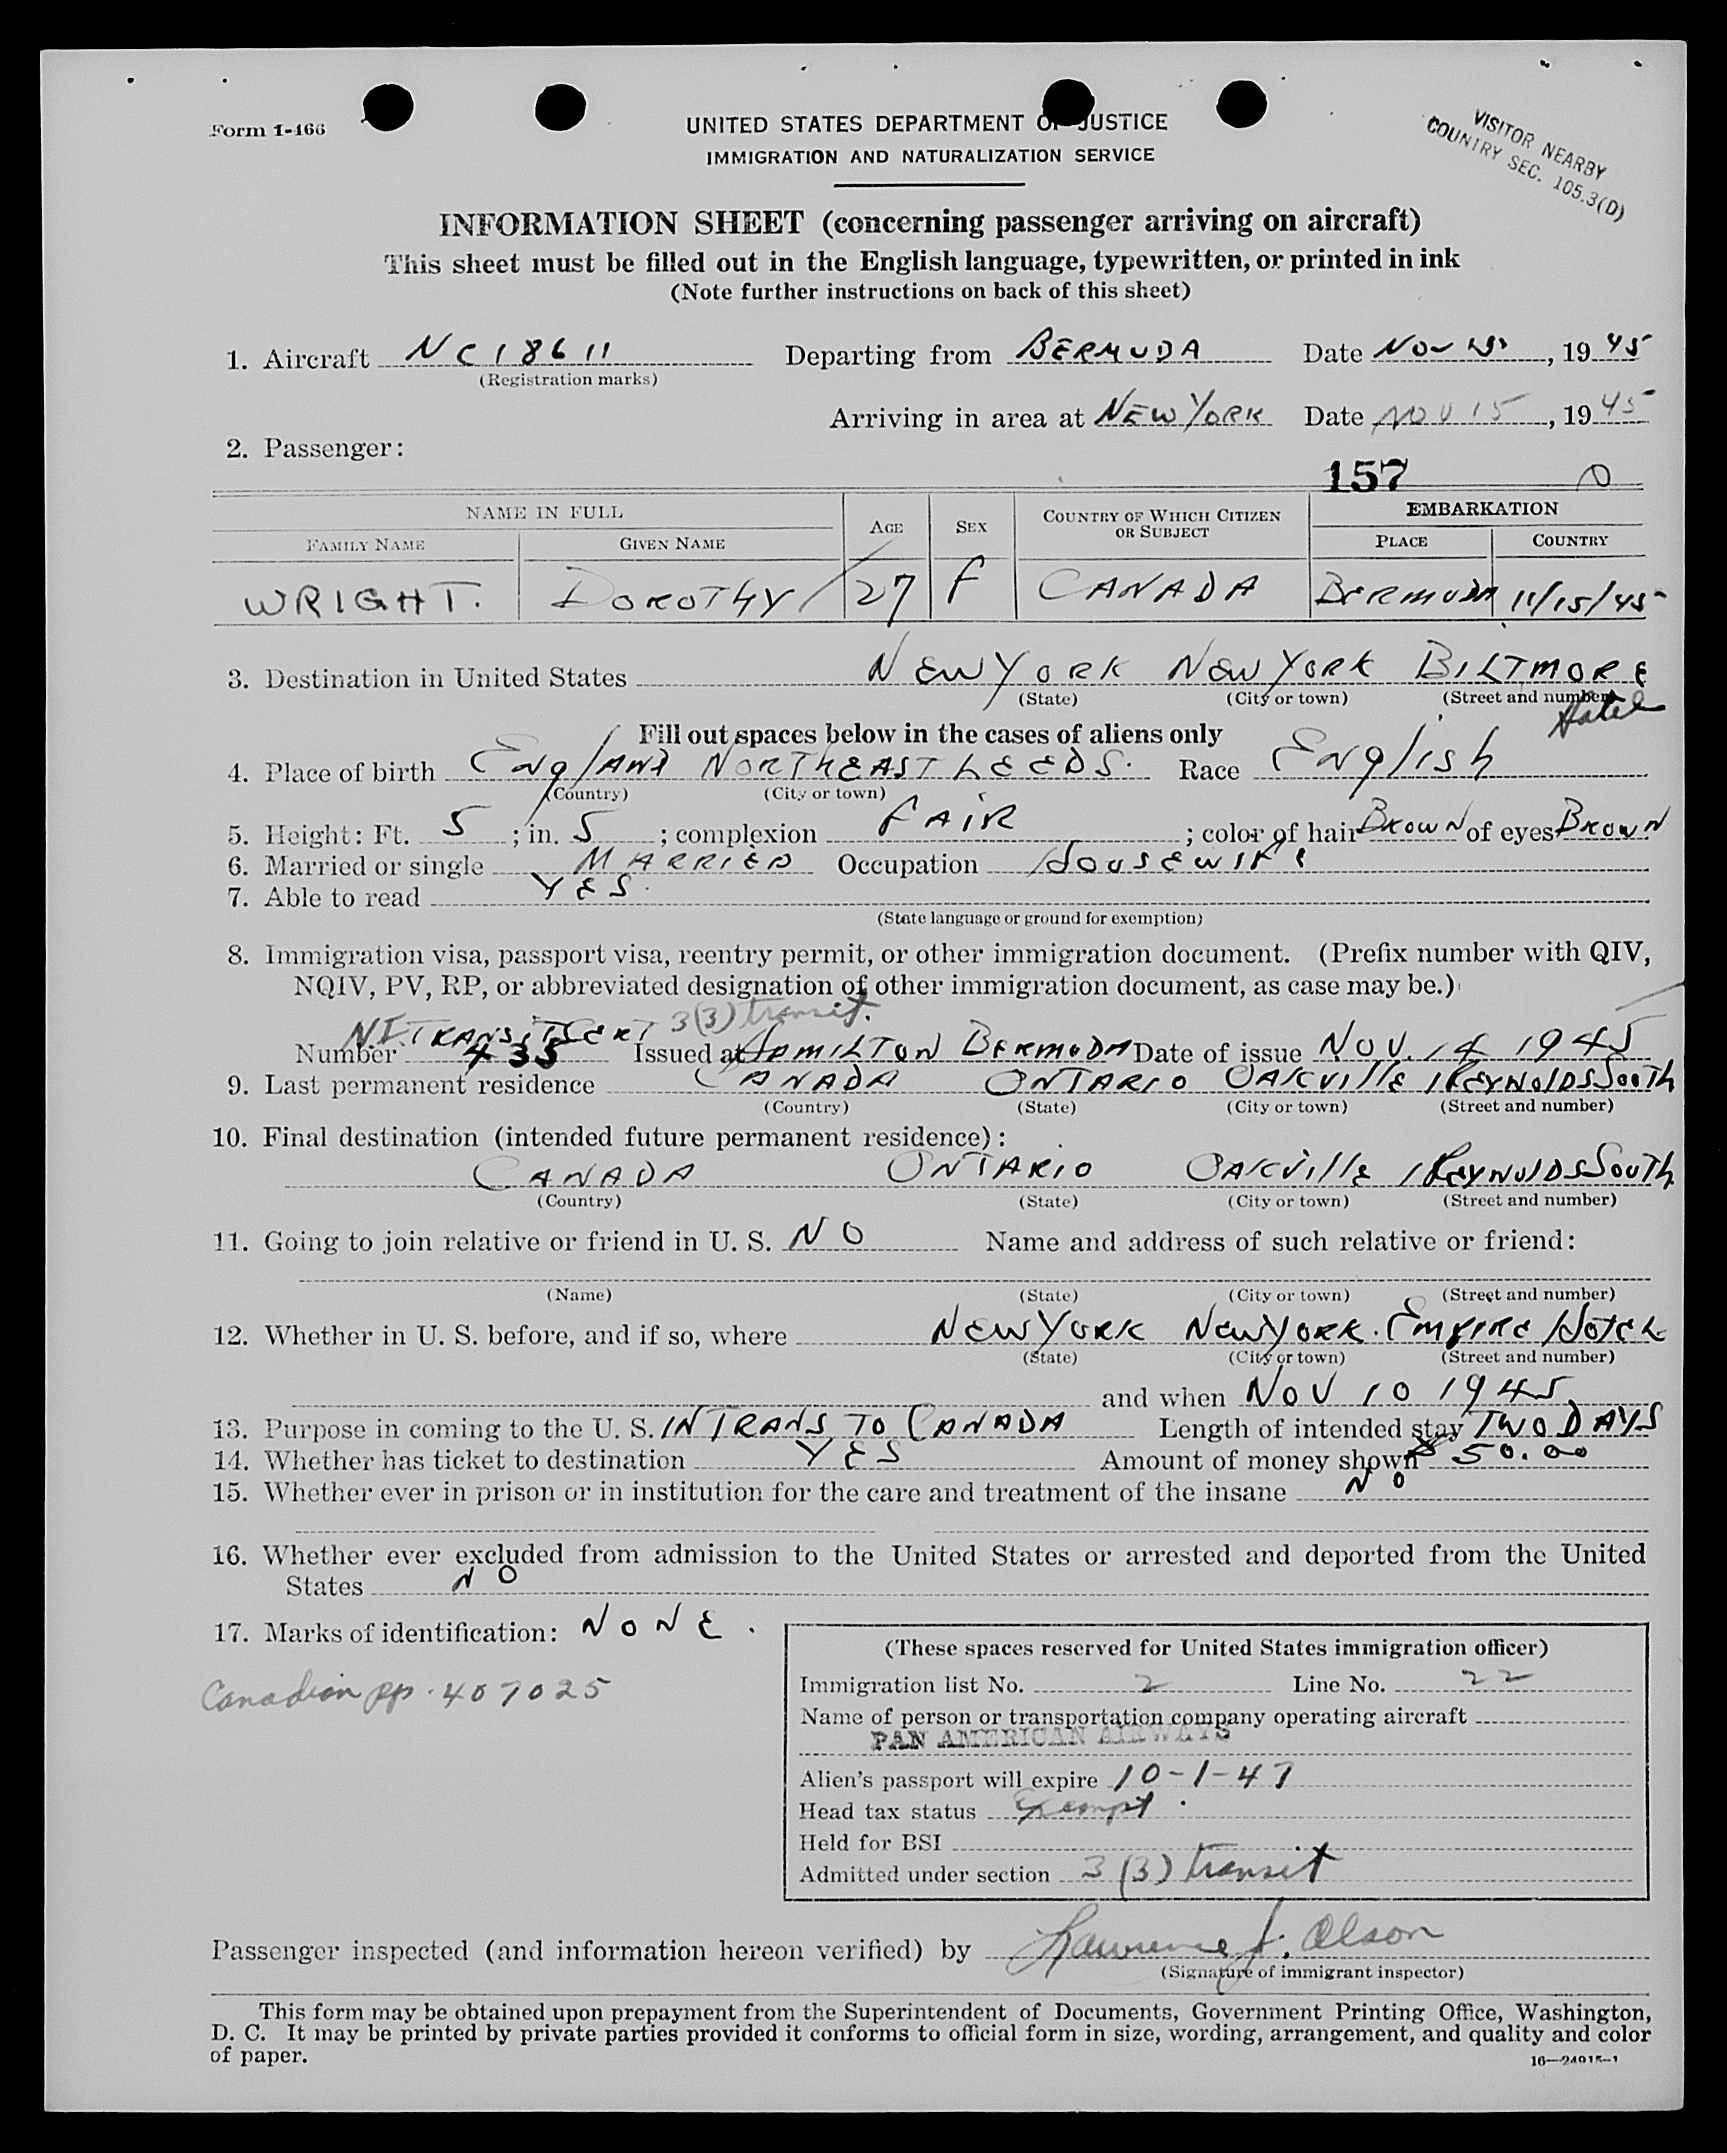 Form I-466
UNITED STATES DEPARTMENT OF JUSTICE
IMMIGRATION AND NATURALIZATION SERVICE
VISITOR NEARBY
COUNTRY SEC. 105.3(D)
INFORMATION SHEET (concerning passenger arriving on aircraft)
This sheet must be filled out in the English language, typewritten, or printed in ink
(Note further instructions on back of this sheet)
1. Aircraft NC18611 Departing from BERMUDA Date NOV 15, 1945
(Registration marks)
Arriving in area at NEW YORK Date NOV 15, 1945
2. Passenger:
157 0
NAME IN FULL AGE SEX COUNTRY OF WHICH CITIZEN OR SUBJECT EMBARKATION
FAMILY NAME GIVEN NAME PLACE COUNTRY
WRIGHT. DOROTHY 27 F CANADA BERMUDA 11/15/45
3. Destination in United States NEW YORK NEW YORK BILTMORE Hotel
(State) (City or town) (Street and number)
Fill out spaces below in the cases of aliens only
4. Place of birth England NORTHEAST LEEDS. Race English
(Country) (City or town)
5. Height: Ft. 5; in. 5; complexion FAIR; color of hair BROWN of eyes BROWN
6. Married or single MARRIED Occupation HOUSEWIFE
7. Able to read YES.
(State language or ground for exemption)
8. Immigration visa, passport visa, reentry permit, or other immigration document. (Prefix number with QIV,
NQIV, PV, RP, or abbreviated designation of other immigration document, as case may be.)
N.I. TRANSIT CERT 3(3) transit.
Number 435 Issued at HAMILTON BERMUDA Date of issue NOV. 14 1945
9. Last permanent residence CANADA ONTARIO OAKVILLE 1 REYNOLDS SOUTH
(Country) (State) (City or town) (Street and number)
10. Final destination (intended future permanent residence):
CANADA ONTARIO OAKVILLE 1 REYNOLDS SOUTH
(Country) (State) (City or town) (Street and number)
11. Going to join relative or friend in U. S. NO Name and address of such relative or friend:
(Name) (State) (City or town) (Street and number)
12. Whether in U. S. before, and if so, where NEW YORK NEW YORK. EMPIRE HOTEL
(State) (City or town) (Street and number)
and when NOV 10 1945
13. Purpose in coming to the U. S. IN TRANS TO CANADA Length of intended stay TWO DAYS
14. Whether has ticket to destination YES Amount of money shown $50.00
15. Whether ever in prison or in institution for the care and treatment of the insane NO
16. Whether ever excluded from admission to the United States or arrested and deported from the United
States NO
17. Marks of identification: NONE.
Canadian pp. 407025
(These spaces reserved for United States immigration officer)
Immigration list No. 2 Line No. 22
Name of person or transportation company operating aircraft
PAN AMERICAN AIRWAYS
Alien's passport will expire 10-1-47
Head tax status Exempt.
Held for BSI
Admitted under section 3(3) transit
Passenger inspected (and information hereon verified) by Lawrence J. Olson
(Signature of immigrant inspector)
This form may be obtained upon prepayment from the Superintendent of Documents, Government Printing Office, Washington,
D. C. It may be printed by private parties provided it conforms to official form in size, wording, arrangement, and quality and color
of paper.
16—24915-1